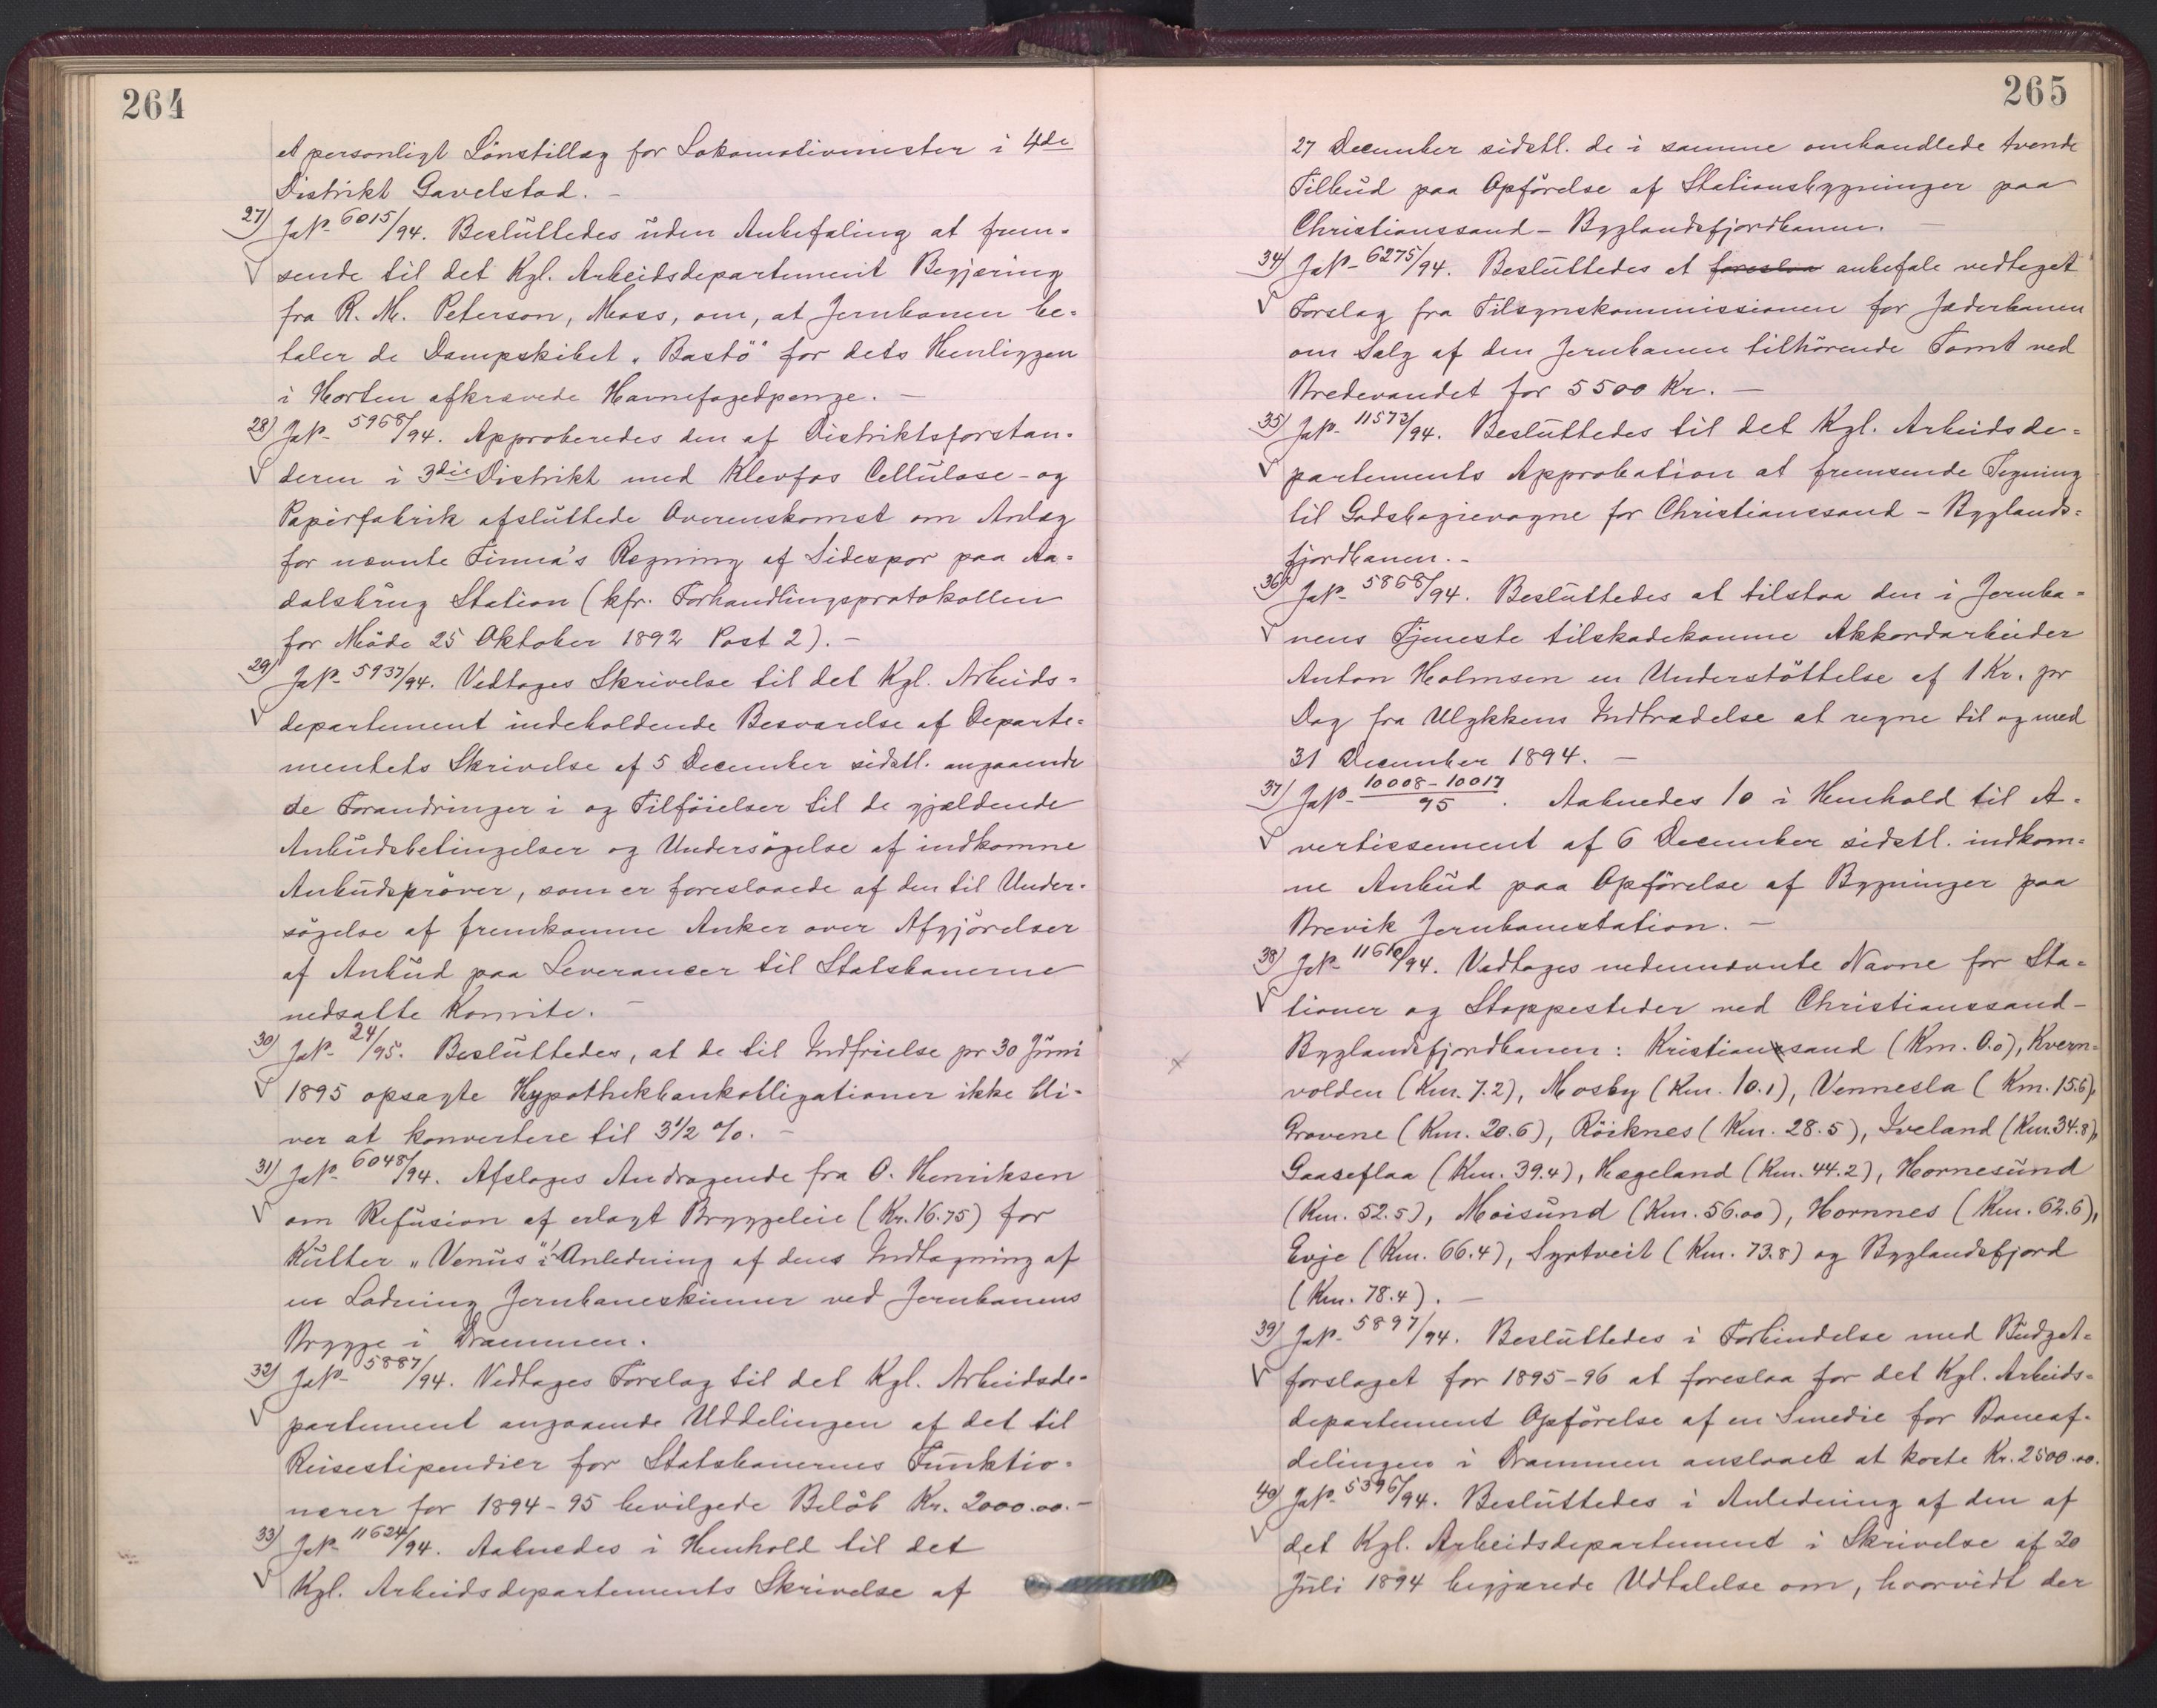 264
et personligt Lönstillæg for Lokomotivmester i 4de
Distrikt Gavelstad. –
27) JNo 6015/94. Besluttedes uden Anbefaling at frem-
sende til det Kgl. Arbeidsdepartement Begjæring
fra R. M. Peterson, Moss, om, at Jernbanen be-
taler de Dampskibet „Bastö“ for dets Henliggen
i Horten afkrævede Havnefogedpenge. –
28) JNo 5968/94. Approberedes den af Distriktsforstan-
deren i 3die Distrikt med Klevfos Cellulose- og
Papirfabrik afsluttede Overenskomst om Anlæg
for nævnte Firma's Regning af Sidespor paa Aa-
dalsbrug Station (kfr. Forhandlingsprotokollen
for Möde 25 Oktober 1892 Post 2). –
29) JNo 5937/94. Vedtoges Skrivelse til det Kgl. Arbeids-
departement indeholdende Besvarelse af Departe-
mentets Skrivelse af 5 December sidstl. angaaende
de Forandringer i og Tilföielser til de gjældende
Anbudsbetingelser og Undersögelse af indkomne
Anbudspröver, som er foreslaaede af den til Under-
sögelse af fremkomne Anker over Afgjörelser
af Anbud paa Leverancer til Statsbanerne
nedsatte Komite. –
30) JNo 24/95. Besluttedes, at de til Indfrielse pr 30 Juni
1895 opsagte Hypothekbankobligationer ikke bli-
ver at konvertere til 3½ %. –
31) JNo 6048/94. Afsloges Andragende fra O. Henriksen
om Refusion af erlagt Bryggeleie (Kr. 16.75) for
Kutter „Venus“ i Anledning af dens Indtagning af
en Ladning Jernbaneskinner ved Jernbanens
Brygge i Drammen.
32) JNo 5887/94. Vedtoges Forslag til det Kgl. Arbeidsde-
partement angaaende Uddelingen af det til
Reisestipendier for Statsbanernes Funktio-
nærer for 1894-95 bevilgede Belöb Kr. 2000.00. –
33) JNo 11624/94. Aabnedes i Henhold til det
Kgl. Arbeidsdepartements Skrivelse af
265
27 December sidstl. de i samme omhandlede tvende
Tilbud paa Opförelse af Stationsbygninger paa
Christianssand – Byglandsfjordbanen. –
34) JNo 6275/94. Besluttedes at foreslaa anbefale vedtaget
Forslag fra Tilsynskommissionen for Jæderbanen
om Salg af den Jernbanen tilhörende Tomt ved
Bredevandet for 5500 Kr. –
35) JNo 11573/94. Besluttedes til det Kgl. Arbeidsde-
partements Approbation at fremsende Tegning
til Godsbogievogne for Christianssand – Byglands-
fjordbanen. –
36) JNo 5868/94. Besluttedes at tilstaa den i Jernba-
nens Tjeneste tilskadekomne Akkordarbeider
Anton Holmsen en Understöttelse af 1 Kr. pr
Dag fra Ulykkens Indtrædelse at regne til og med
31 December 1894. –
37) JNo 10008-10017/95. Aabnedes 10 i Henhold til A-
vertissement af 6 December sidstl. indkom-
ne Anbud paa Opförelse af Bygninger paa
Brevik Jernbanestation. –
38) JNo 11610/94. Vedtoges nedennævnte Navne for Sta-
tioner og Stoppesteder ved Christianssand –
Byglandsfjordbanen: Kristianssand (Km. 0.0), Kvern-
volden (Km. 7.2), Mosby (Km. 10.1), Vennesla (Km. 15.6),
Grovene (Km. 20.6), Röiknes (Km. 28.5), Iveland (Km. 34.8),
Gaaseflaa (Km. 39.4), Hægeland (Km. 44.2), Hornesund
(Km. 52.5), Moisund (Km. 56.00), Hornnes (Km. 62.6),
Evje (Km. 66.4), Syrtveit (Km. 73.8) og Byglandsfjord
(Km. 78.4). –
39) JNo 5897/94. Besluttedes i Forbindelse med Budget-
forslaget for 1895-96 at foreslaa for det Kgl. Arbeids-
departement Opförelse af en Smedie for Baneaf-
delingen i Drammen anslaaet at koste Kr. 2500.00.
40) JNo 5396/94. Besluttedes i Anledning af den af
det Kgl. Arbeidsdepartement i Skrivelse af 20
Juli 1894 begjærede Udtalelse om, hvorvidt der